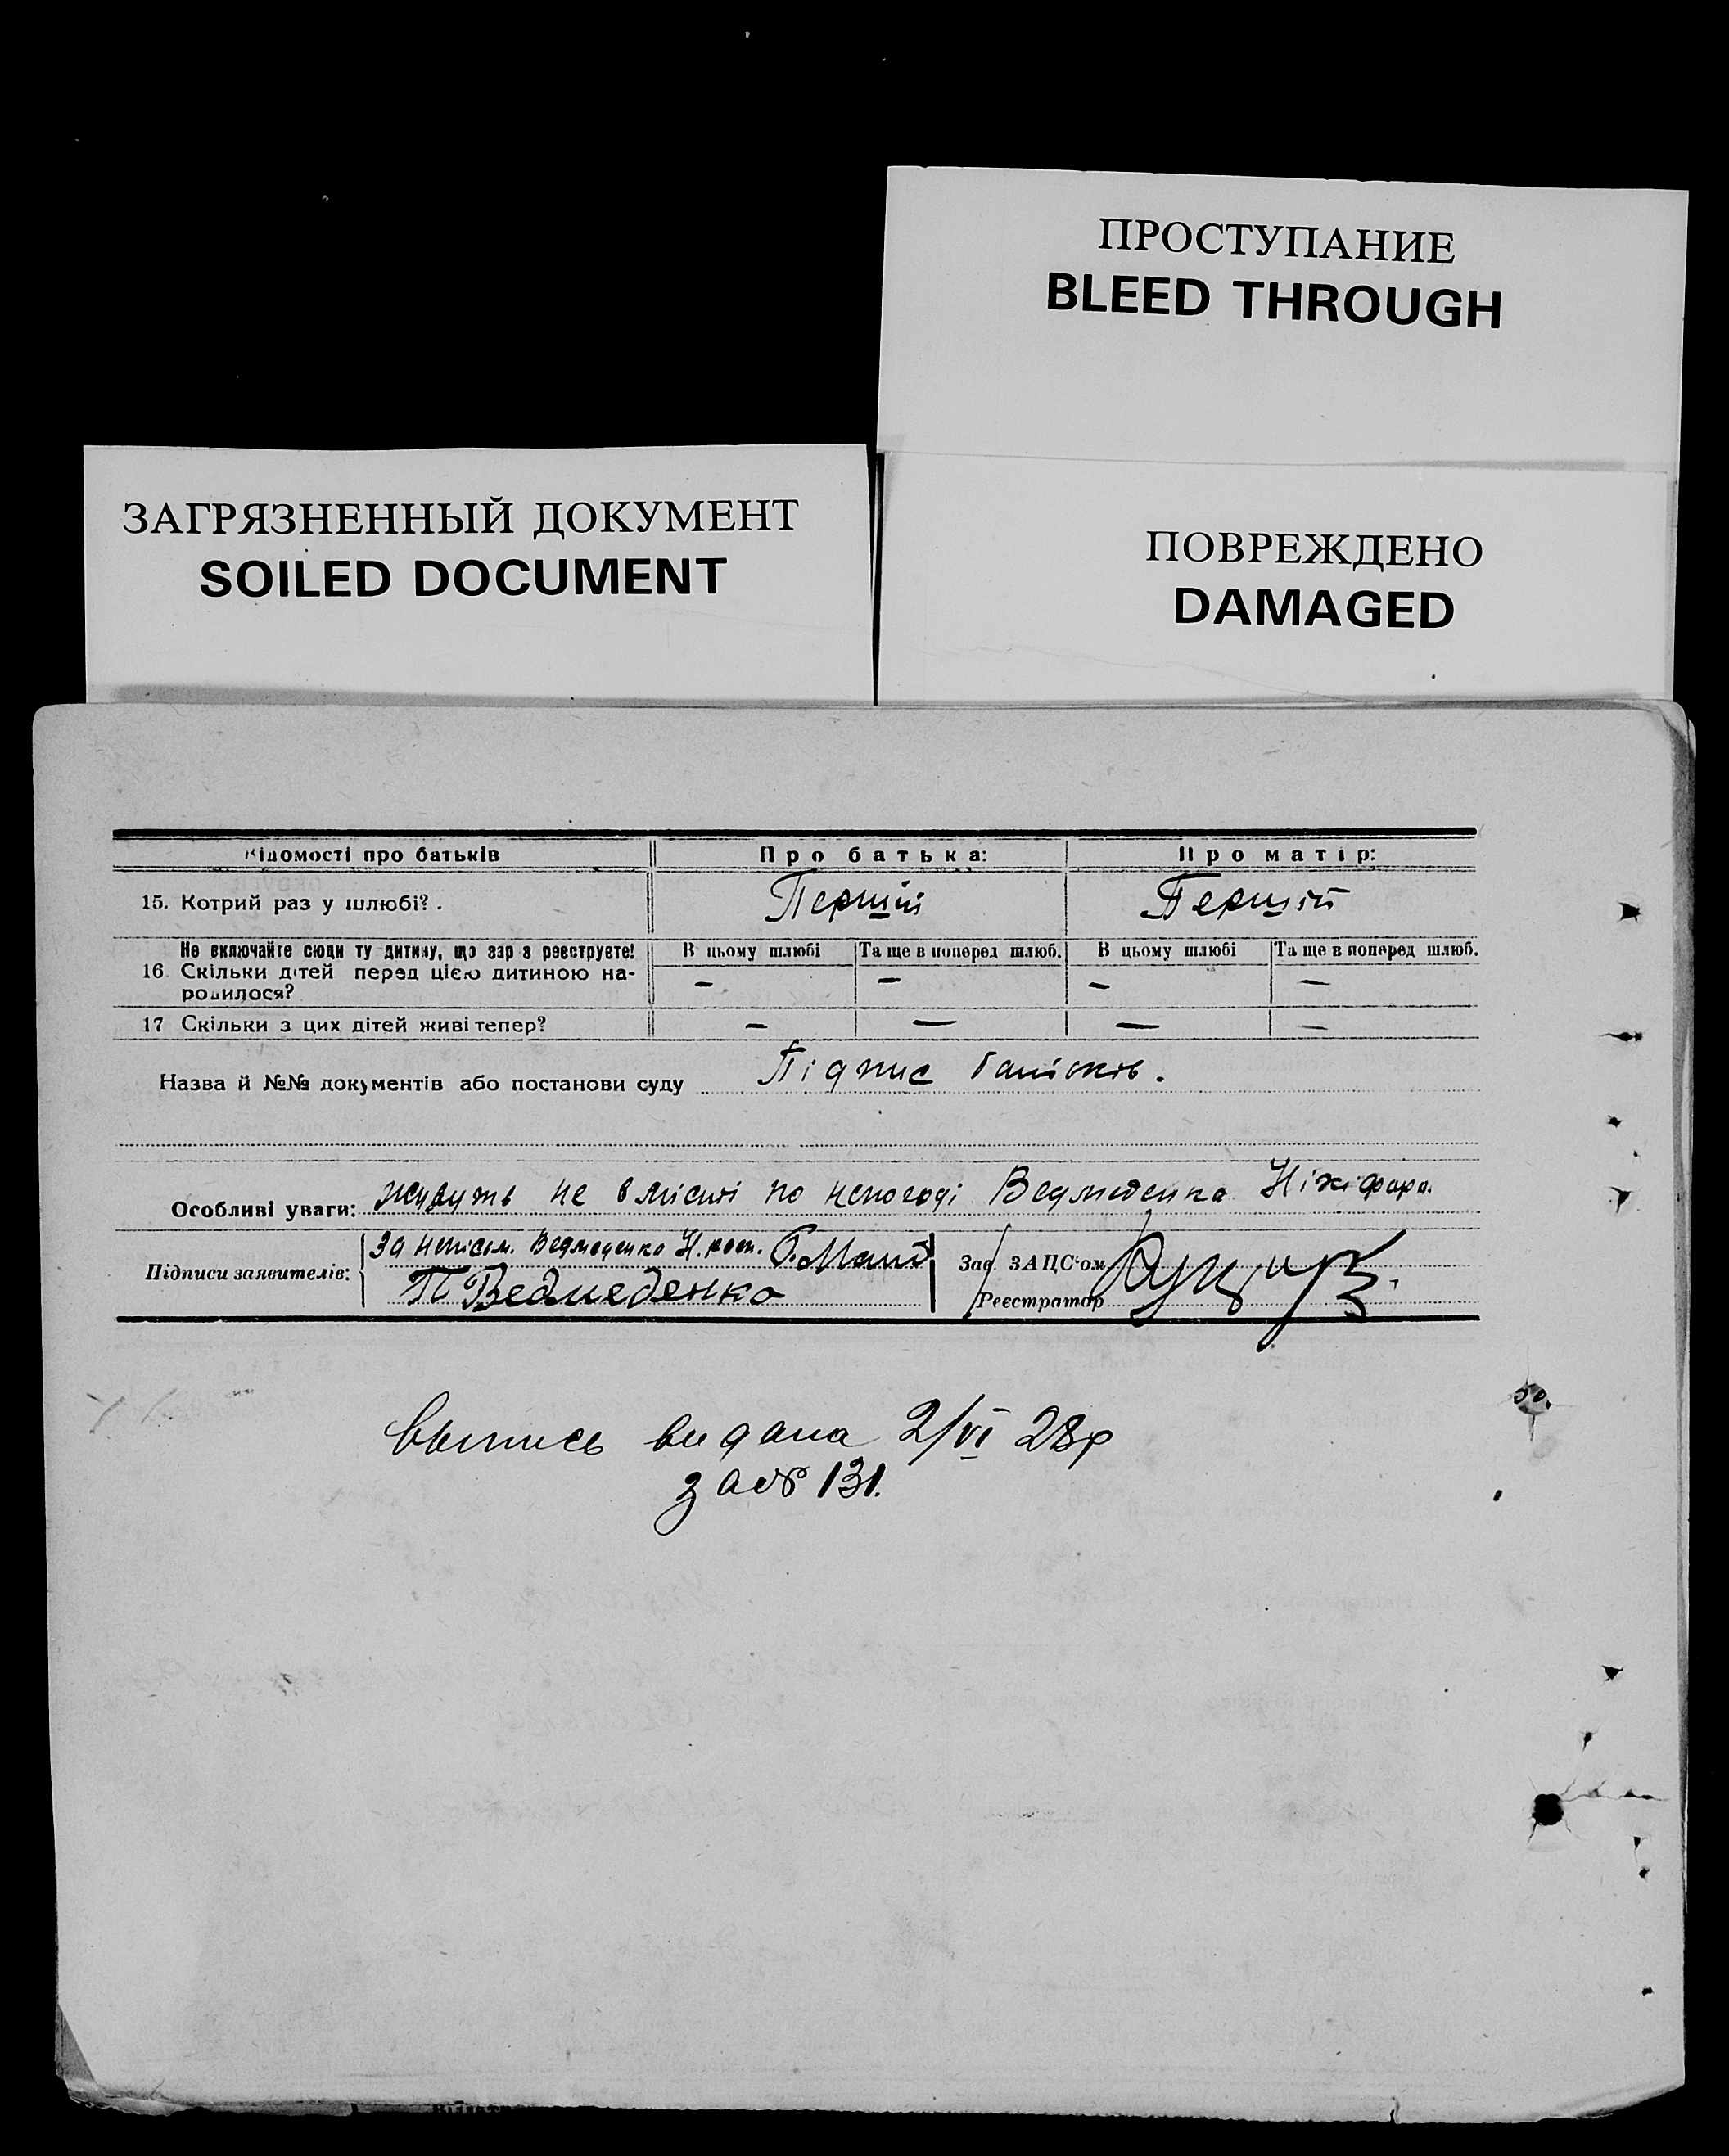 ПРОСТУПАНИЕ
BLEED THROUGH
ЗАГРЯЗНЕННЫЙ ДОКУМЕНТ
SOILED DOCUMENT
ПОВРЕЖДЕНО
DAMAGED
Відомості про батьків Про батька: Про матір:
15. Котрий раз у шлюбі? . Перший Перший
Не включайте сюди ту дитину, що зараз реєструєте! В цьому шлюбі Та ще в поперед шлюб. В цьому шлюбі Та ще в поперед шлюб.
16. Скільки дітей перед цією дитиною на-
родилося? — — — —
17 Скільки з цих дітей живі тепер? — — — —
Назва й №№ документів або постанови суду Підпис батьків.
Особливі уваги: живуть не в місті по непогоді Ведмеденко Нікіфора.
Підписи заявителів: За непісьм. Ведмеденко Н. росп.
Т Ведмеденко
Зав. ЗАЦС'ом
Реєстратор
Выпись видана 2/VI 28р
за № 131.